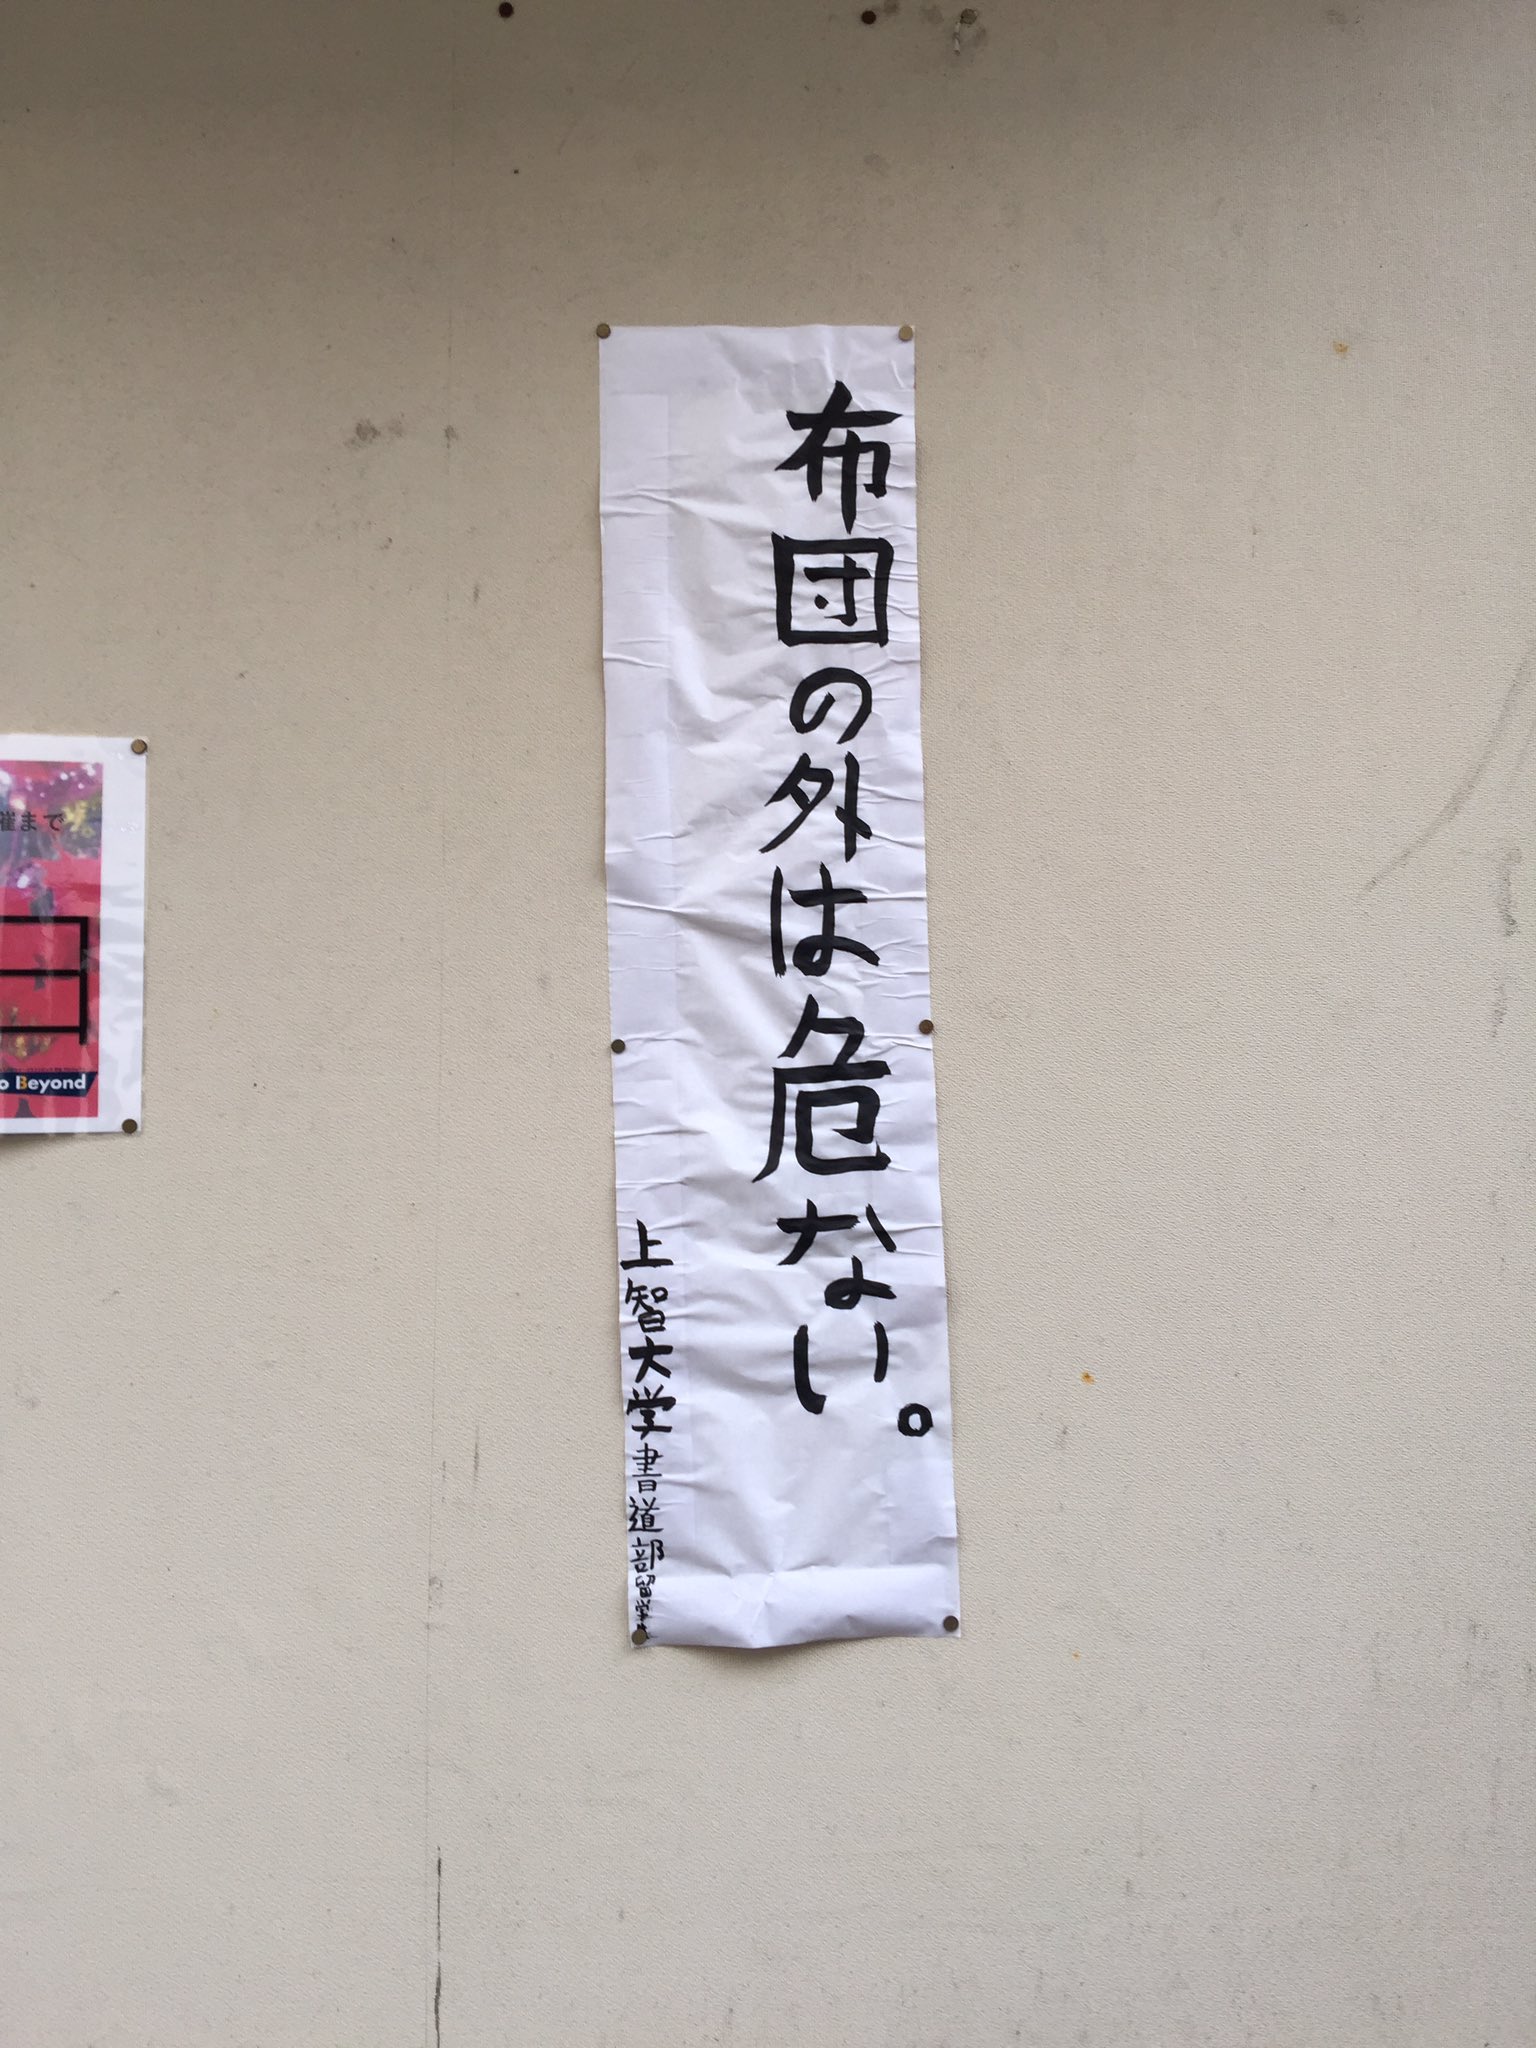 布団の外は危ない。
上智大学書道部留学生
催まで
o Beyond